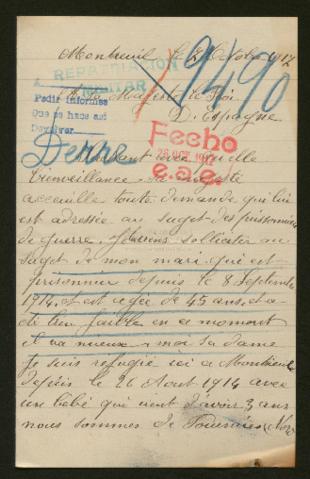 Montreuil le 2 Octobre 1917
REPATRIACION
MILITAR
9490
A Sa Majesté le Roi
D. Espagne
Pedir informes
Que se hace así
Fecho
26 OCT. 1917
e.a.e.
Sachant avec quelle
bienveillance Sa Majesté
acceuille toute demande qui lui
est adressée au suget des prisonniers
de guerre. Je viens sollicitér au
suget de mon mari qui est
prisonnier depuis le 8 Septembre
1914. et est agée de 45 ans et a
été bien faible en ce moment
il va mieux. moi sa dame
je suis refugié ici a Montreuil
depuis le 26 Aout 1914 avec
un bébé qui vient d'avoir 3 ans
nous sommes de Tourcoing (Nord